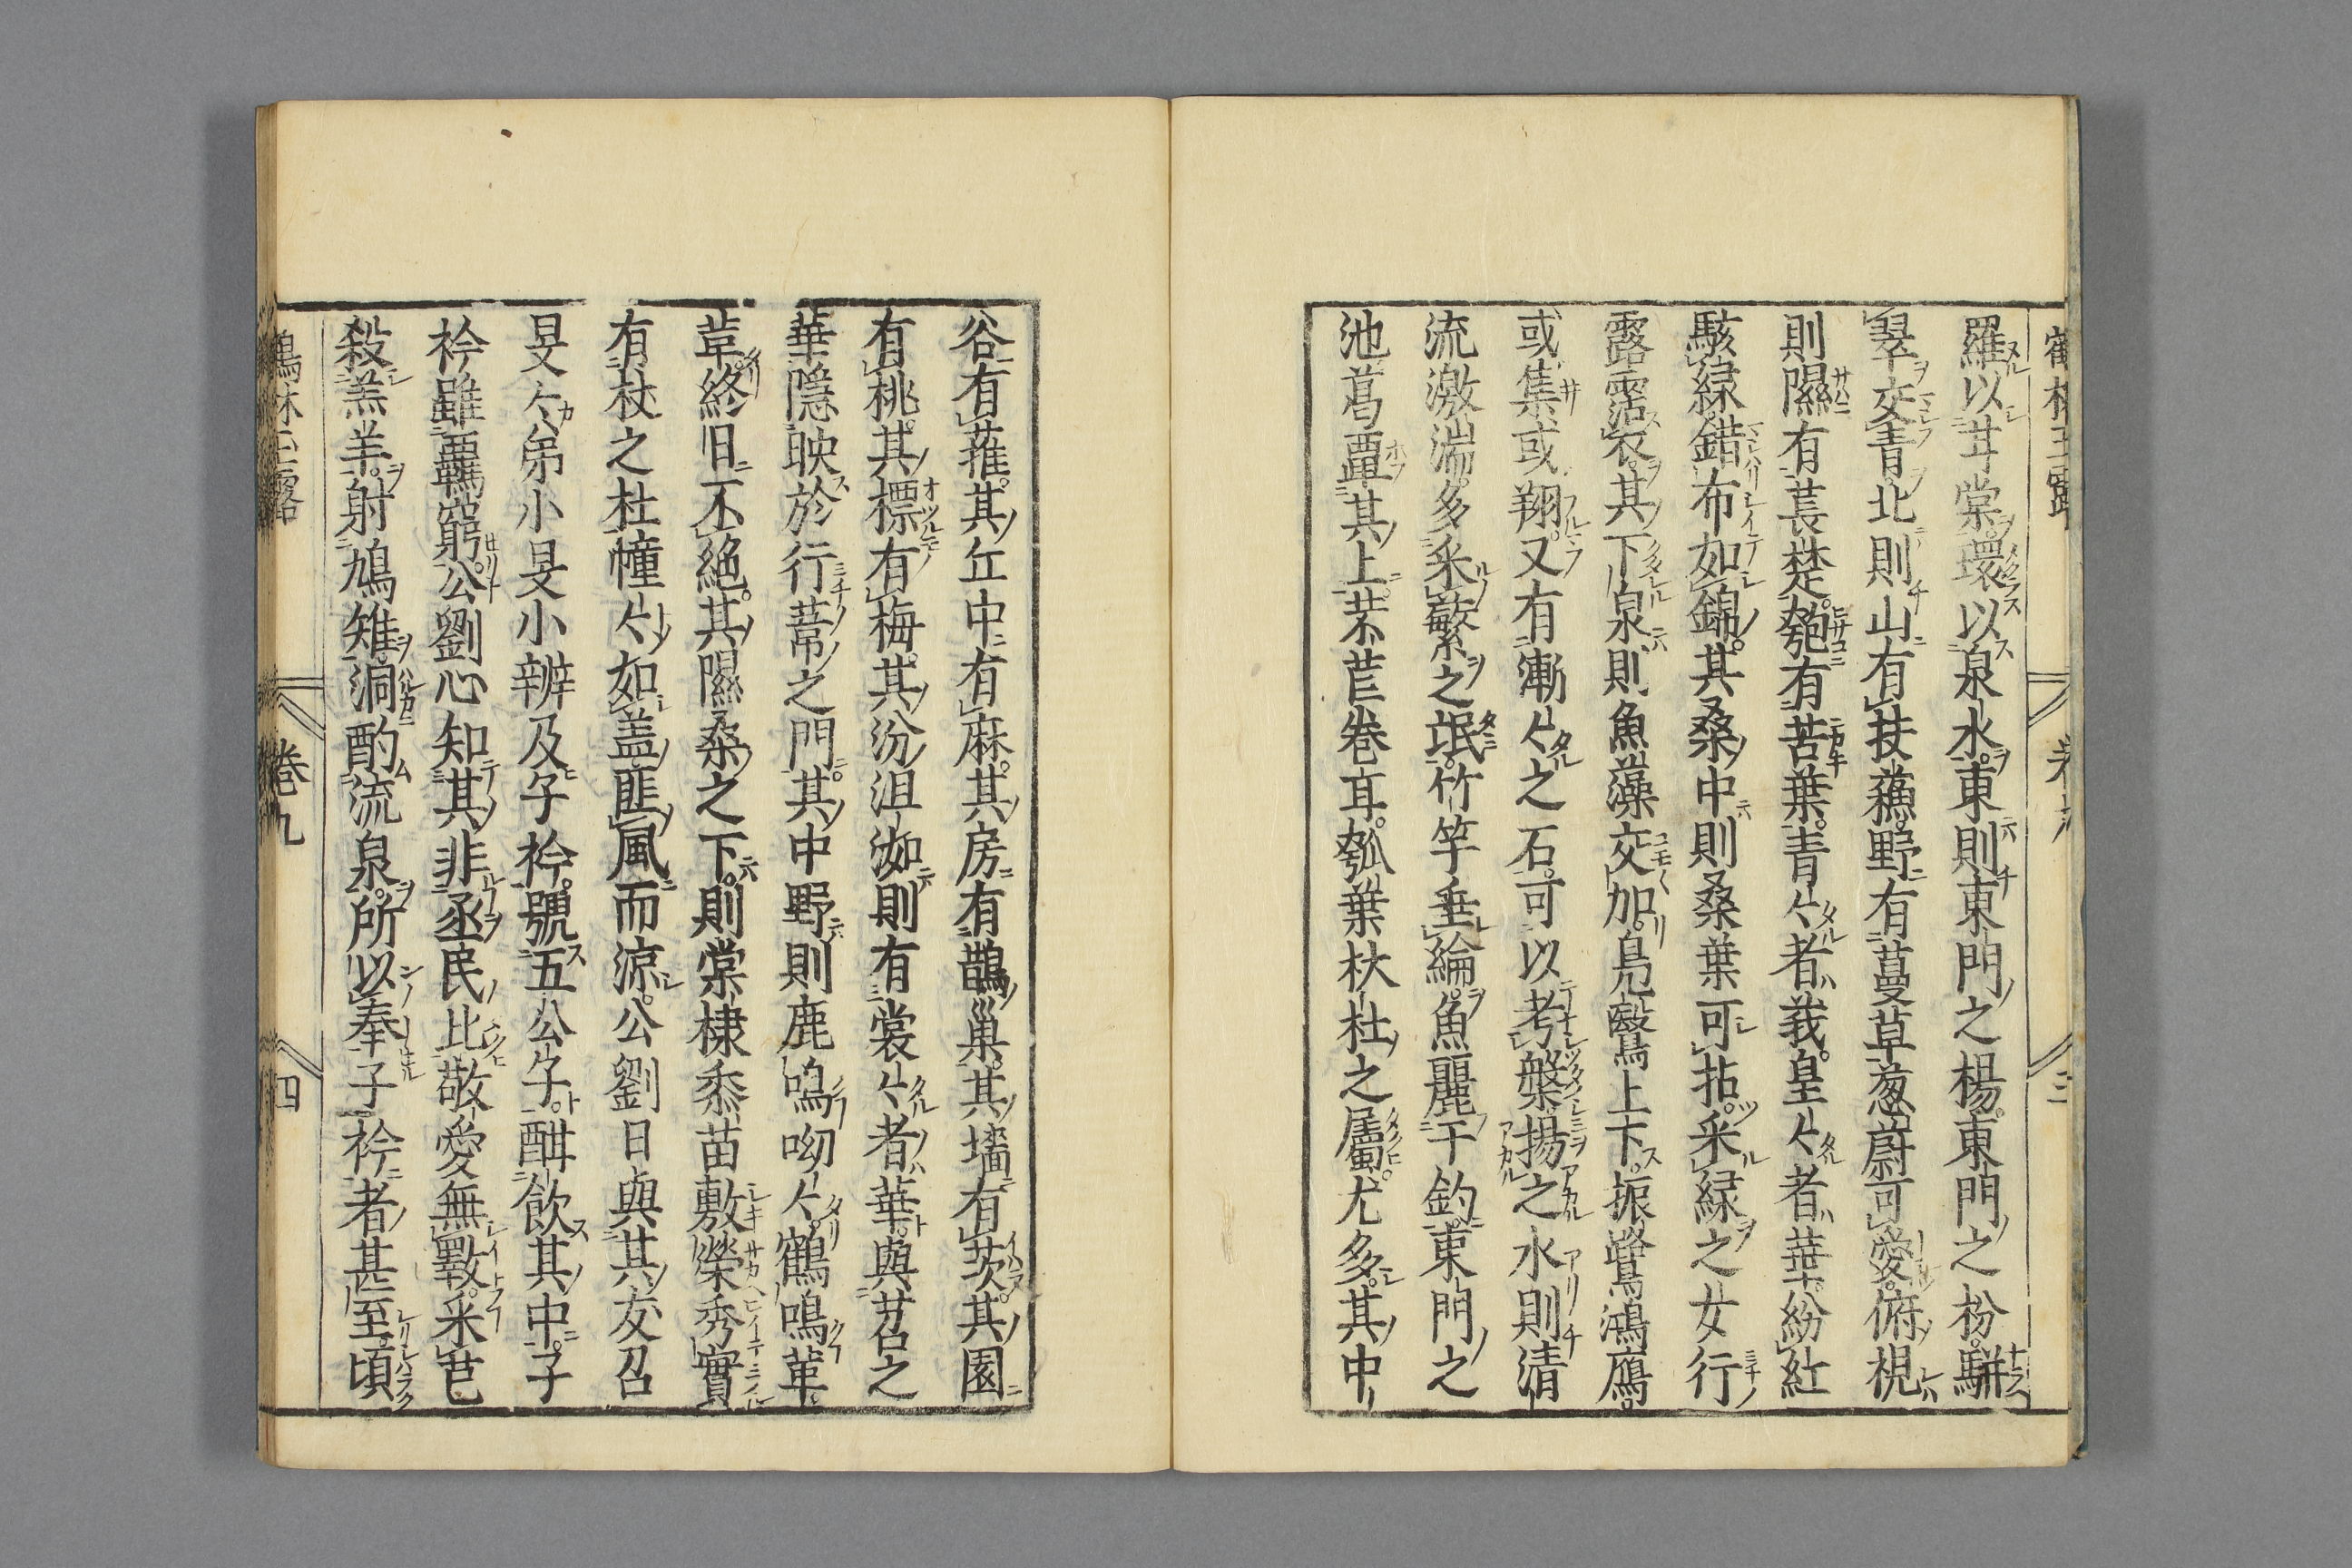 羅以甘棠環以泉水東則東門之楊東門之枌駢
翠交青北則山有扶蘓野有蔓草葱蔚可愛俯視
則隰有萇楚匏有苦葉青々者莪皇々者華紛紅
駭緑錯布如錦其桑中則桑葉可拈采緑之女行
露霑衣其下泉則魚藻交加鳧鷖上下振鷺鴻鴈
或集或翔又有漸々之石可以考槃揚之水則清
流激湍多采蘩之氓竹竿垂綸魚麗于釣東門之
池葛覃其上芣苢卷耳瓠葉杕杜之屬尤多其中
谷有蓷其丘中有麻其房有鵲巢其墻有茨其園
有桃其摽有梅其汾沮洳則有裳々者華與苕之
華隠映於行葦之門其中野則鹿鳴呦々鶴鳴華
萼終旧不絶其隰桑之下則棠棣黍苗敷榮秀實
有杕之杜幢々如盖匪風而涼公劉日與其友召
旻々弟小旻小辨及子衿號五公子酣飲其中子
衿雖覊窮公劉心知其非丞民比敬愛無斁采芑
殺羔羊射鳩雉洞酌流泉所以奉子衿者甚至頃
鶴林玉露 卷九 四